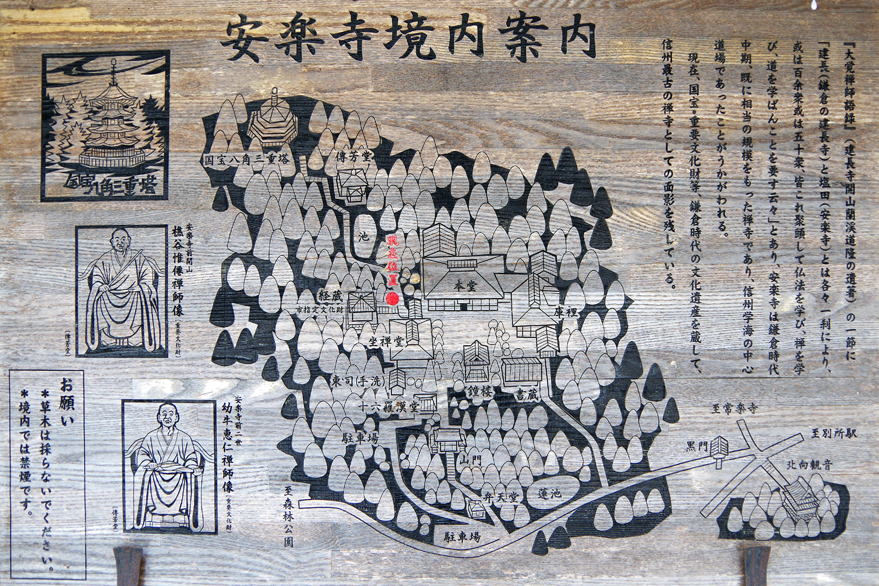 安楽寺境内案内
『大覚禅師語録』(建長寺開山蘭渓道隆の遺著)の一節に
「建長(鎌倉の建長寺)と塩田(安楽寺)とは各々一刹により、
或は百余衆或は五十衆、皆これ聚頭して仏法を学び、禅を学
び、道を学ばんことを要す云々」とあり、安楽寺は鎌倉時代
中期、既に相当の規模をもった禅寺であり、信州学海の中心
道場であったことがうかがわれる。
現在、国宝・重要文化財等、鎌倉時代の文化遺産を蔵して、
信州最古の禅寺としての面影を残している。
国宝八角三重塔
安楽寺開山
樵谷惟僊禅師像
(重要文化財)
(傳芳堂)
安楽寺前二世
幼牛恵仁禅師像
(重要文化財)
(傳芳堂)
お願い
*草木は採らないでください。
*境内では禁煙です。
国宝八角三重塔
傳芳堂
池
現在位置
本堂
経蔵
市指定文化財
庫裡
坐禅堂
東司(手洗)
鐘楼
書蔵
十六羅漢堂
駐車場
山門
弁天堂
蓮池
駐車場
至森林公園
黒門
至常楽寺
至別所駅
北向観音